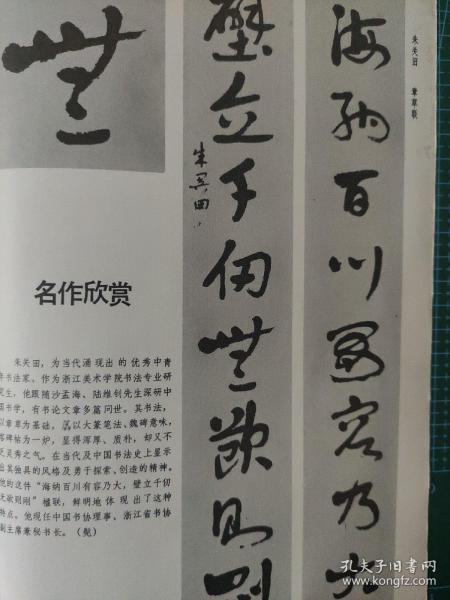 朱关田 章草联
海納百川容乃大
壁立千仞無欲則剛
朱関田
無
名作欣赏
朱关田，为当代涌现出的优秀中青
年书法家。作为浙江美术学院书法专业研
究生，他跟随沙孟海、陆维创先生深研中
国书学，有书论文章多篇问世。其书法，
以章草为基础，羼以大篆笔法、魏碑意味，
容碑帖为一炉，显得浑厚、质朴，却又不
乏灵秀之气。在当代及中国书法史上显示
出其独具的风格及勇于探索、创造的精神。
他的这件“海纳百川有容乃大，壁立千仞
无欲则刚”楹联，鲜明地体现出了这种
特点。他现任中国书协理事、浙江省书协
副主席兼秘书长。（彪）
孔夫子旧书网